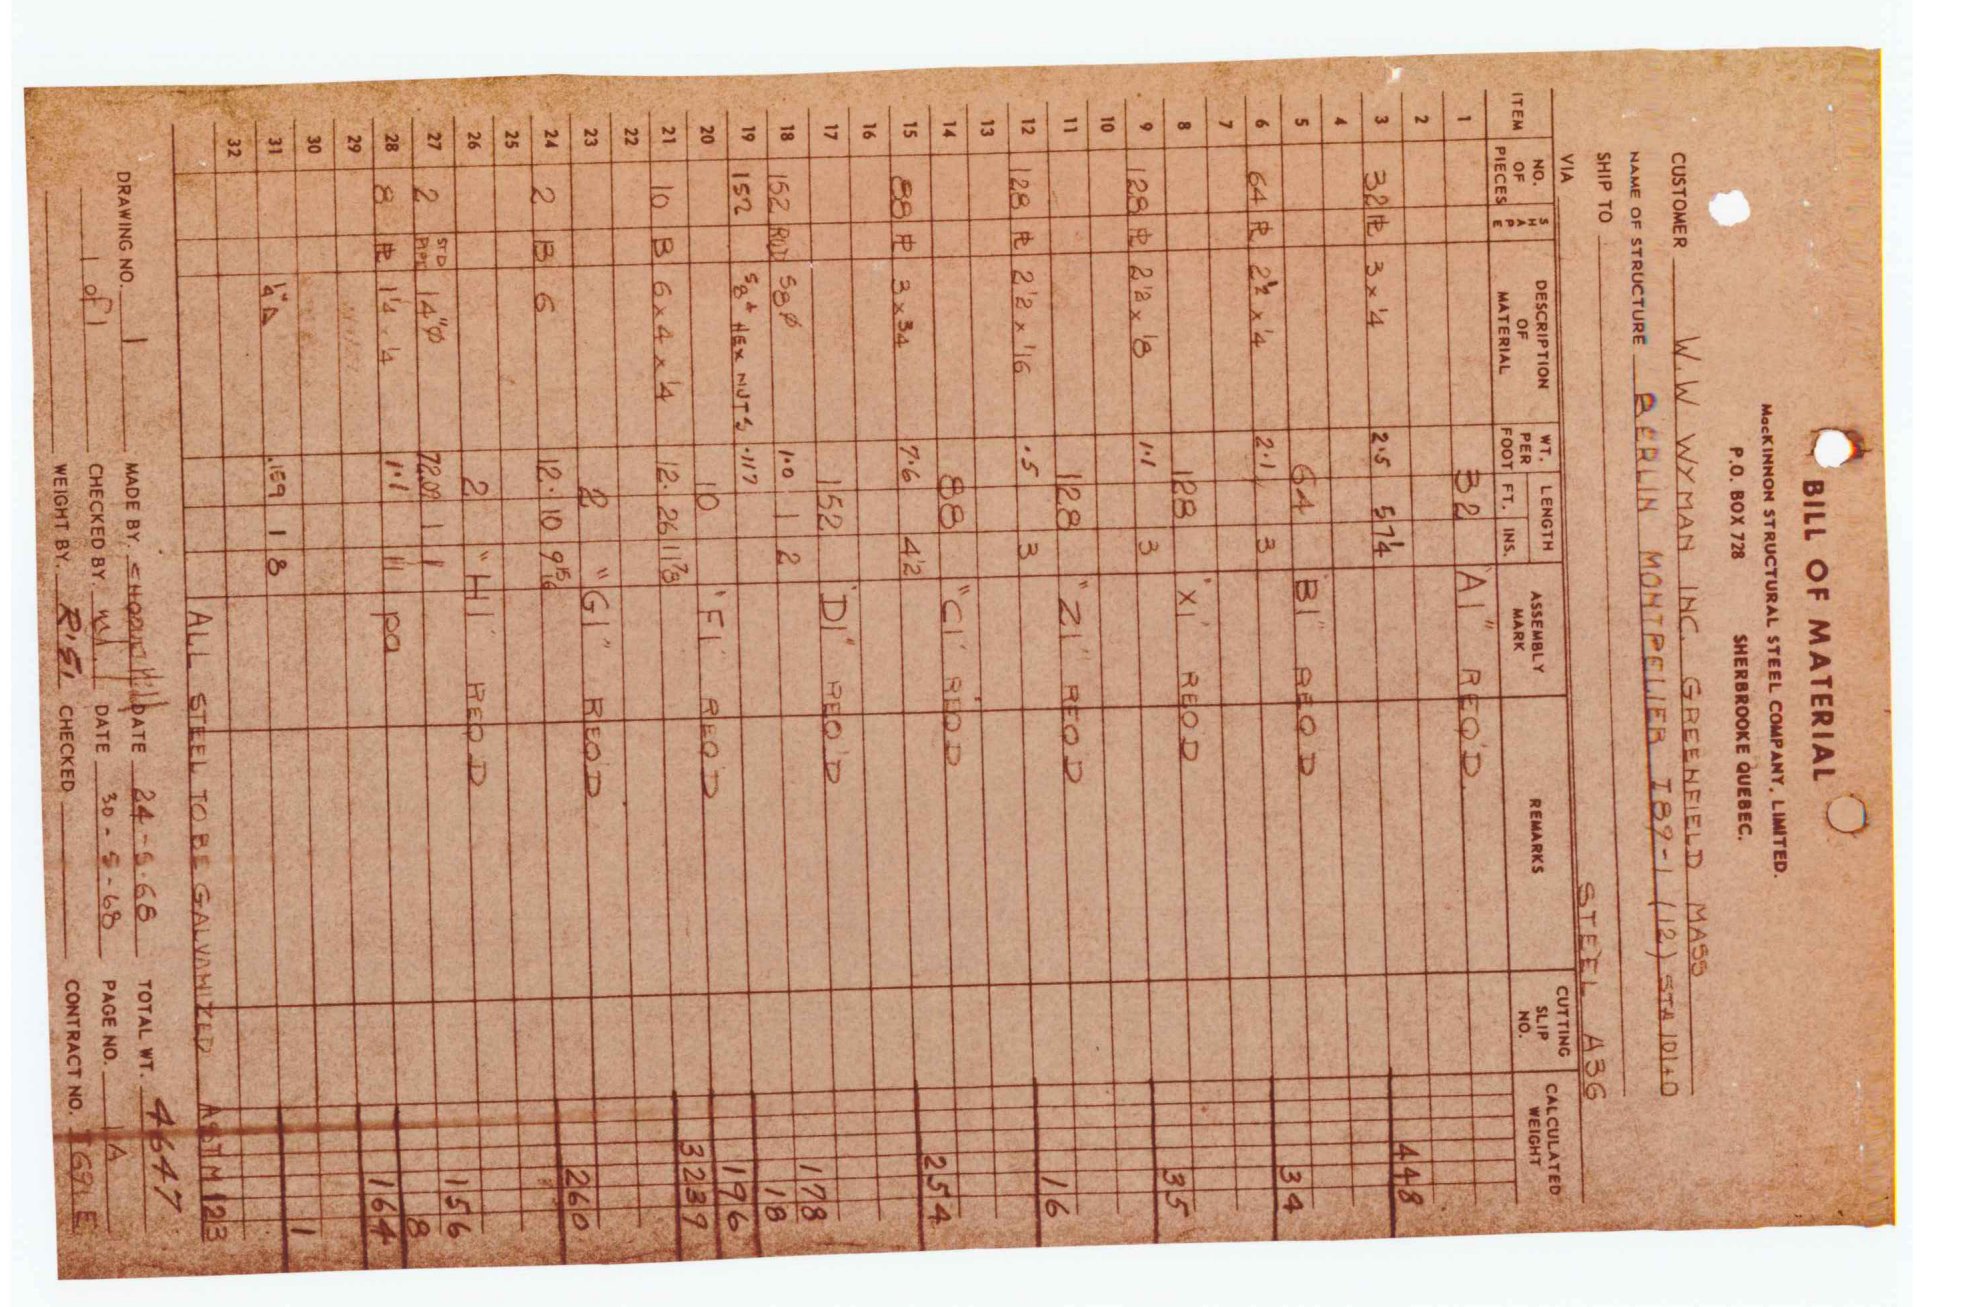 BILL OF MATERIAL
MacKINNON STRUCTURAL STEEL COMPANY, LIMITED.
P.O. BOX 728 SHERBROOKE QUEBEC.
CUSTOMER W.W WYMAN INC. GREENFIELD MASS
NAME OF STRUCTURE BERLIN MONTPELIER I89-1 (12) STA 101+0
SHIP TO
VIA STEEL A36
ITEM NO. OF PIECES SHAPE DESCRIPTION OF MATERIAL WT. PER FOOT LENGTH FT. INS. ASSEMBLY MARK REMARKS CUTTING SLIP NO. CALCULATED WEIGHT
1 32 "A1" REQ'D.
2
3 32 PL 3 x 1/4 2.5 5 7 1/4 448
4
5 64 "B1" REQ'D
6 64 PL 2 1/2 x 1/4 2.1 3 34
7
8 128 "X1" REQ'D
9 128 PL 2 1/2 x 1/8 1.1 3 35
10
11 128 "Z1" REQ'D
12 128 PL 2 1/2 x 1/16 .5 3 16
13
14 88 "C1" REQ'D
15 88 PL 3 x 3/4 7.6 4 1/2 254
16
17 152 "D1" REQ'D
18 152 ROD 5/8 Ø 1.0 1 2 178
19 152 5/8 HEX NUTS .117 18
196
20 10 "F1" REQ'D
21 10 B 6 x 4 x 1/4 12. 26 11 7/8 3239
22
23 2 "G1" REQ'D
24 2 B 6 12. 10 9 15/16 260
25
26 2 "H1" REQ'D
27 2 STD PIPE 14"Ø 72.09 1 1 156
28 8 PL 1 1/4 x 1/4 1.1 11 pa 8
164
29
30
31 1/4" .159 1 8 1
32
ALL STEEL TO BE GALVANIZED ASTM 123
DRAWING NO. 1 MADE BY. DATE 24-5-68 TOTAL WT. 4647
1 of 1 CHECKED BY. DATE 30-5-68 PAGE NO. 1A
WEIGHT BY. CHECKED CONTRACT NO.